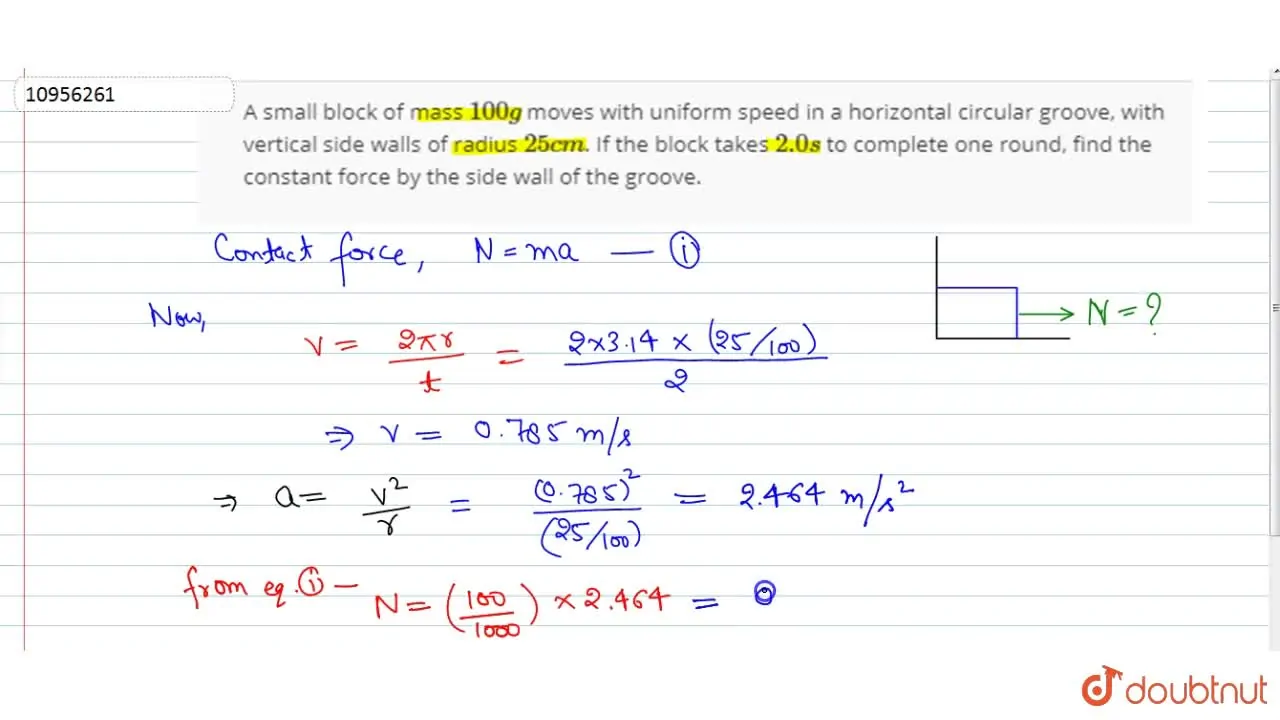 10956261
A small block of mass 100g moves with uniform speed in a horizontal circular groove, with
vertical side walls of radius 25cm. If the block takes 2.0s to complete one round, find the
constant force by the side wall of the groove.
Contact force, N = ma — (i)
N = ?
Now,
v = 2πr/t = 2×3.14 × (25/100)/2
⇒ v = 0.785 m/s
⇒ a = v²/r = (0.785)²/(25/100) = 2.464 m/s²
from eq. (i) — N = (100/1000) × 2.464 =
doubtnut